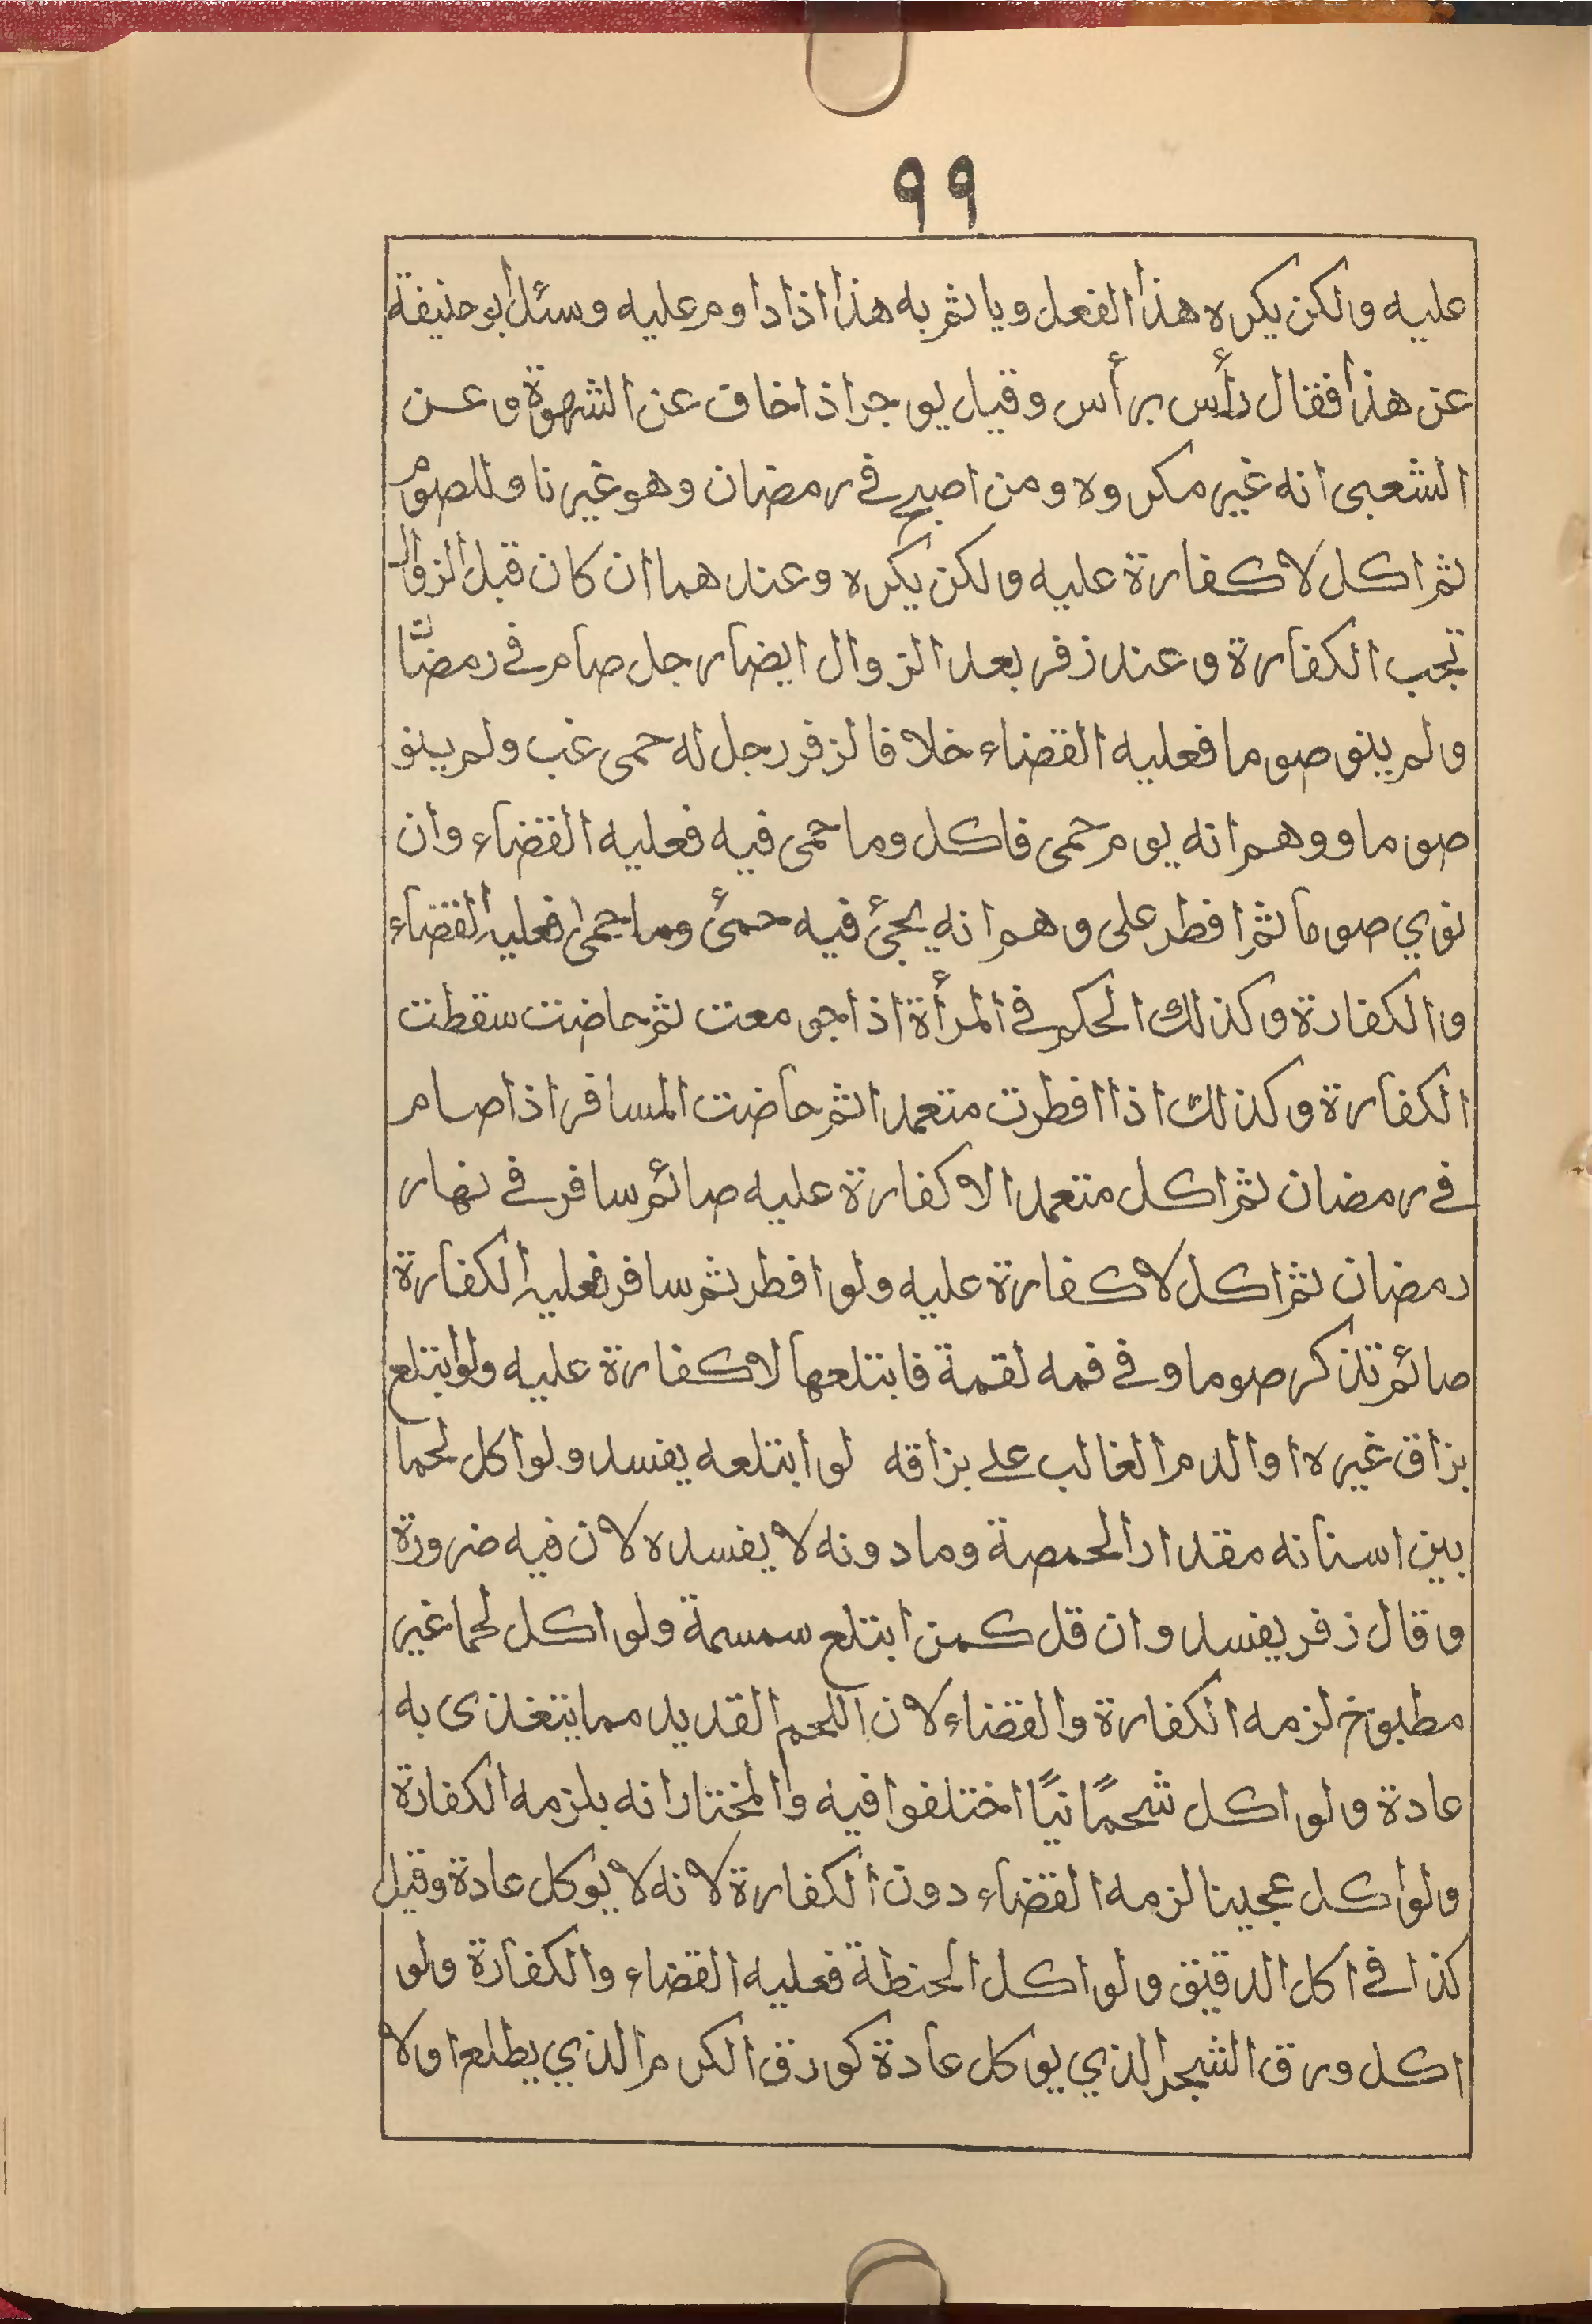 ٩٩
عليه ولكن يكره هذا الفعل وياثم به هذا اذا داوم عليه وسئل أبو حنيفة
عن هذا فقال رأس برأس وقيل يوجر اذا خاف عن الشهوة وعن
الشعبى انه غير مكروه ومن اصبح في رمضان وهو غير ناو للصوم
ثم اكل لا كفارة عليه ولكن يكره وعندهما ان كان قبل الزوال
تجب الكفارة وعند زفر بعد الزوال ايضا رجل صام في رمضان
ولم ينو صوما فعليه القضاء خلافا لزفر رجل له حمى غب ولم ينو
صوما ووهم انه يوم حمى فاكل وما حمى فيه فعليه القضاء وان
نوي صوما ثم افطر على وهم انه يجئ فيه حمئ وما حمئ فعليه القضاء
والكفارة وكذلك الحكم في المرأة اذا جومعت ثم حاضت سقطت
الكفارة وكذلك اذا افطرت متعمدا ثم حاضت المسافر اذا صام
في رمضان ثم اكل متعمدا لا كفارة عليه صائم سافر في نهار
رمضان ثم اكل لا كفارة عليه ولو افطر ثم سافر فعليه الكفارة
صائم تذكر صوما وفي فمه لقمة فابتلعها لا كفارة عليه ولو ابتلع
بزاق غيره او الدم الغالب على بزاقه لو ابتلعه يفسد ولو اكل لحما
بين اسنانه مقدار الحمصة وما دونه لا يفسده لان فيه ضرورة
وقال زفر يفسد وان قل كمن ابتلع سمسمة ولو اكل لحما غير
مطبوخ لزمه الكفارة والقضاء لان اللحم القديد مما يتغذى به
عادة ولو اكل شحمًا نيًا اختلفوا فيه والمختار انه يلزمه الكفارة
ولو اكل عجينا لزمه القضاء دون الكفارة لانه لا يوكل عادة وقيل
كذا في اكل الدقيق ولو اكل الحنطة فعليه القضاء والكفارة ولو
اكل ورق الشجر الذي يوكل عادة كورق الكرم الذي يطلع اولا